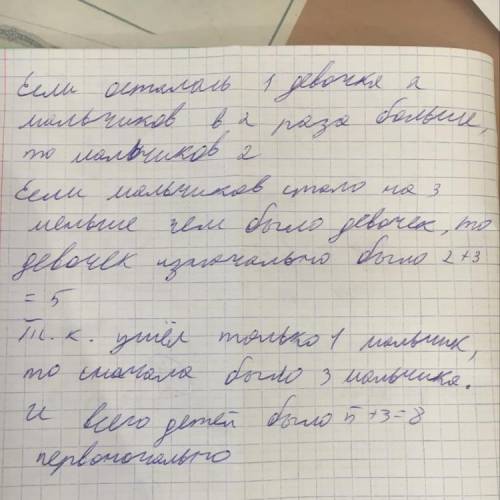 Если осталась 1 девочка а
мальчиков в 2 раза больше,
то мальчиков 2
Если мальчиков стало на 3
меньше чем было девочек, то
девочек изначально было 2+3
= 5
Т.к. ушёл только 1 мальчик,
то сначала было 3 мальчика.
И всего детей было 5+3=8
первоначально